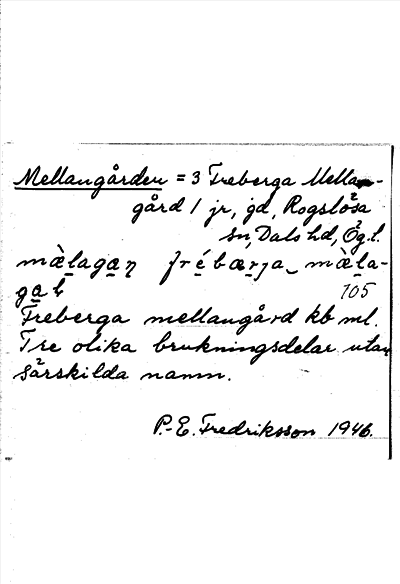 Mellangården = 3 Freberga Mellan-
gård / jr, gd, Rogslösa
sn, Dals hd, Ög.l.
mæ̀lagaṇ frébærja mæ̀la-
gaɫ 105
Freberga mellangård kb ml.
Tre olika brukningsdelar utan
särskilda namn.
P.-E. Fredriksson 1946.